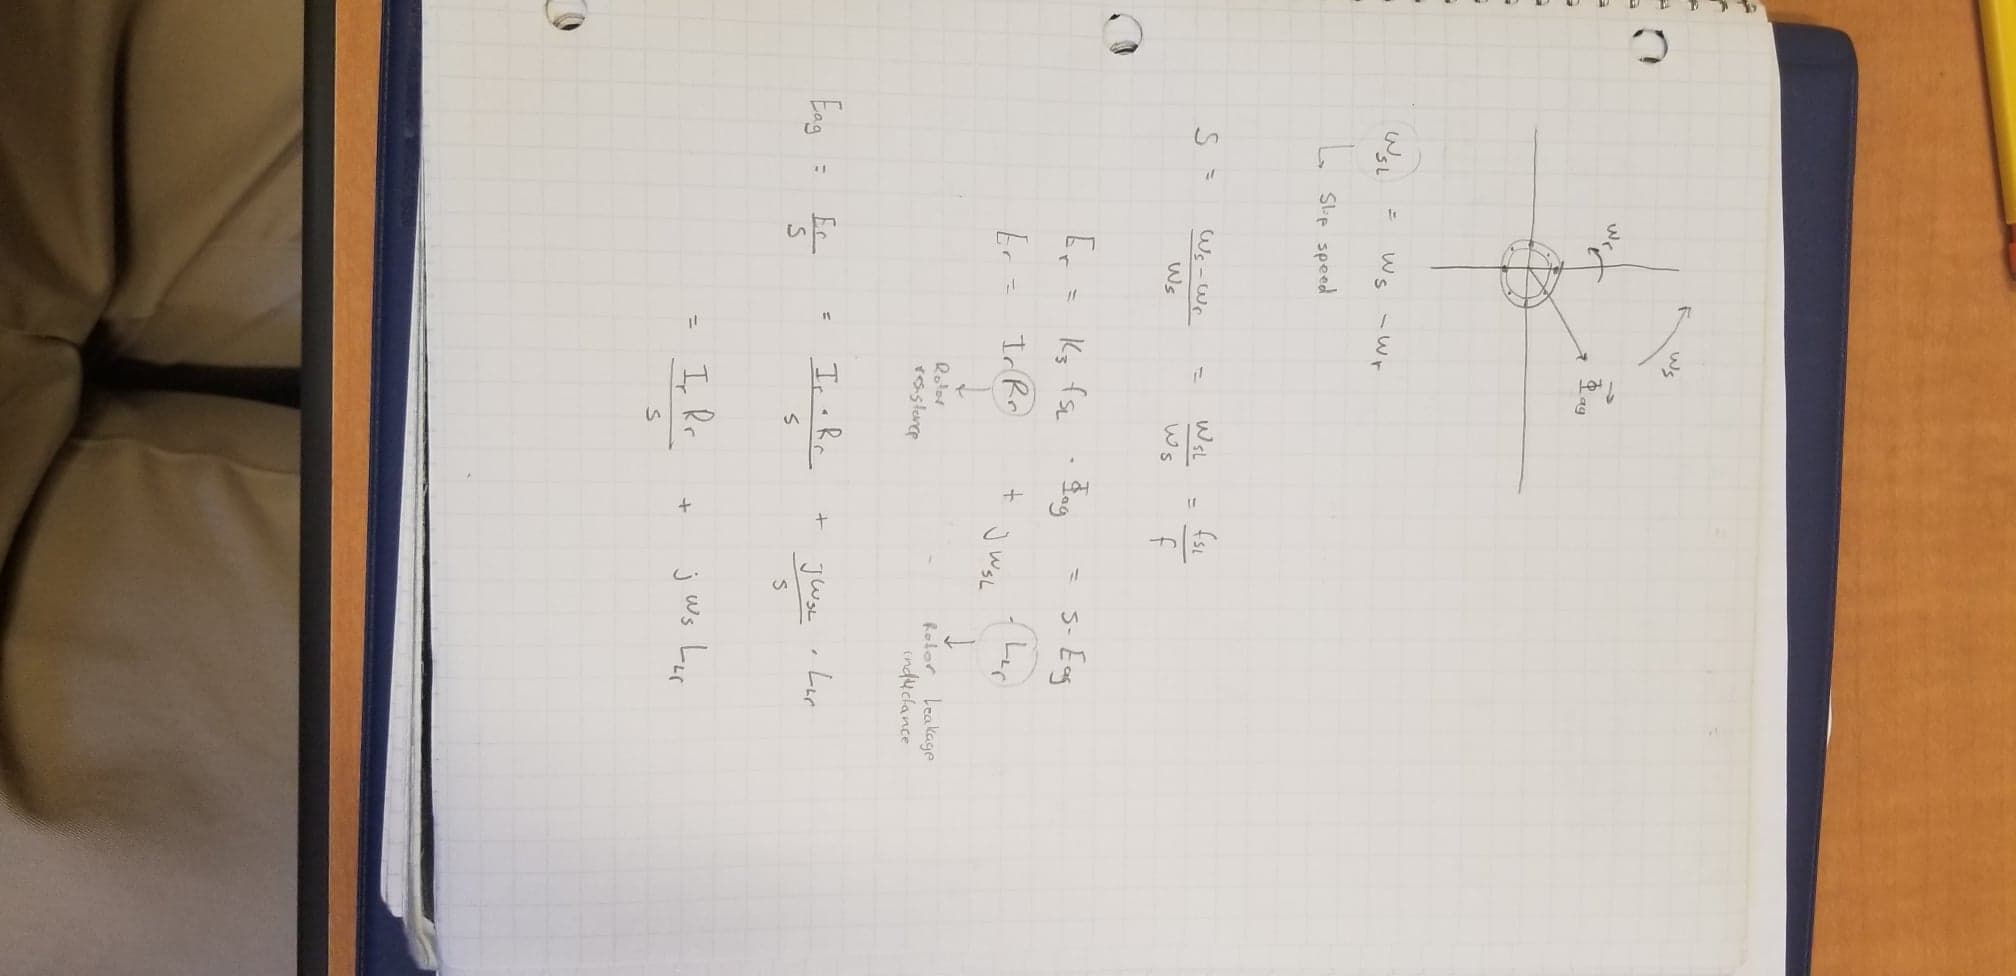 ws
wr
Φag
wsL = ws - wr
↳ Slip speed
S = (ws - wr)/ws = wsL/ws = fsL/f
Er = K3 fsL · Φag = s · Eag
Er = Ir Rr + j wsL · LLr
Rotor resistance
Rotor Leakage inductance
Eag = Er/S = Ir · Rr/s + jwsL/s · LLr
= Ir Rr/s + j ws LLr